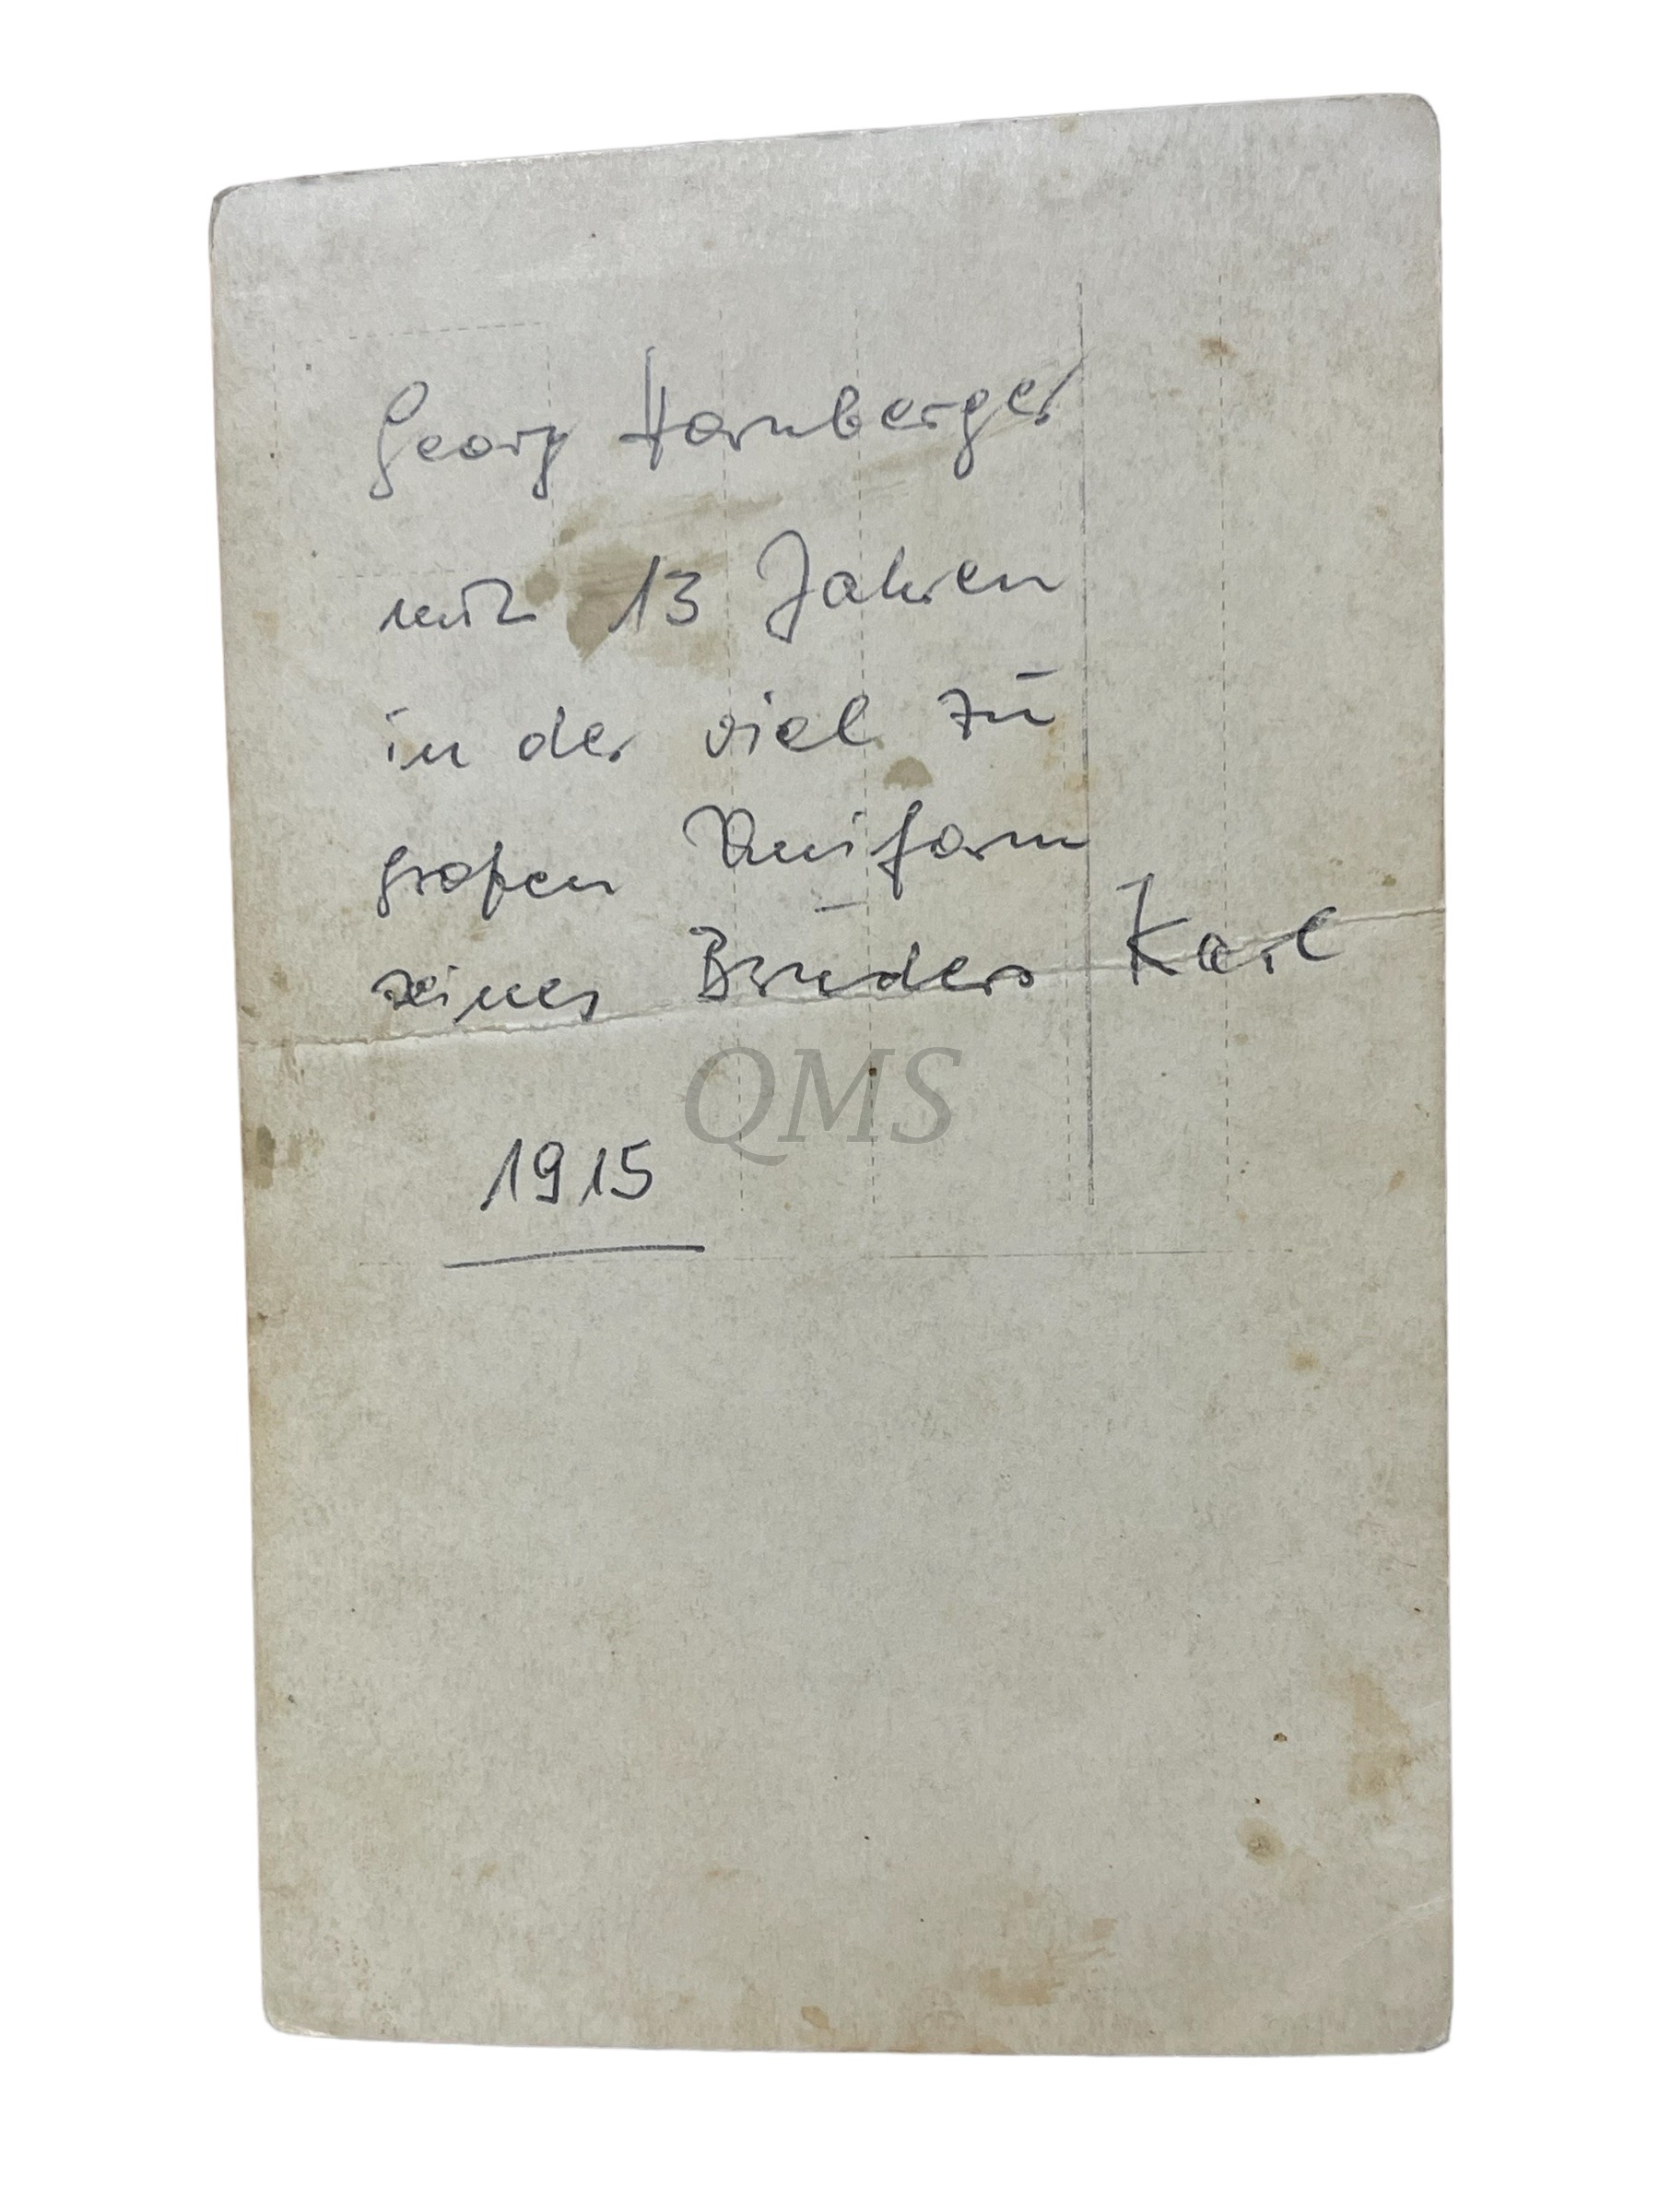 Georg Hornberger
mit 13 Jahren
in der viel zu
großen Uniform
seines Bruders Karl
QMS
1915